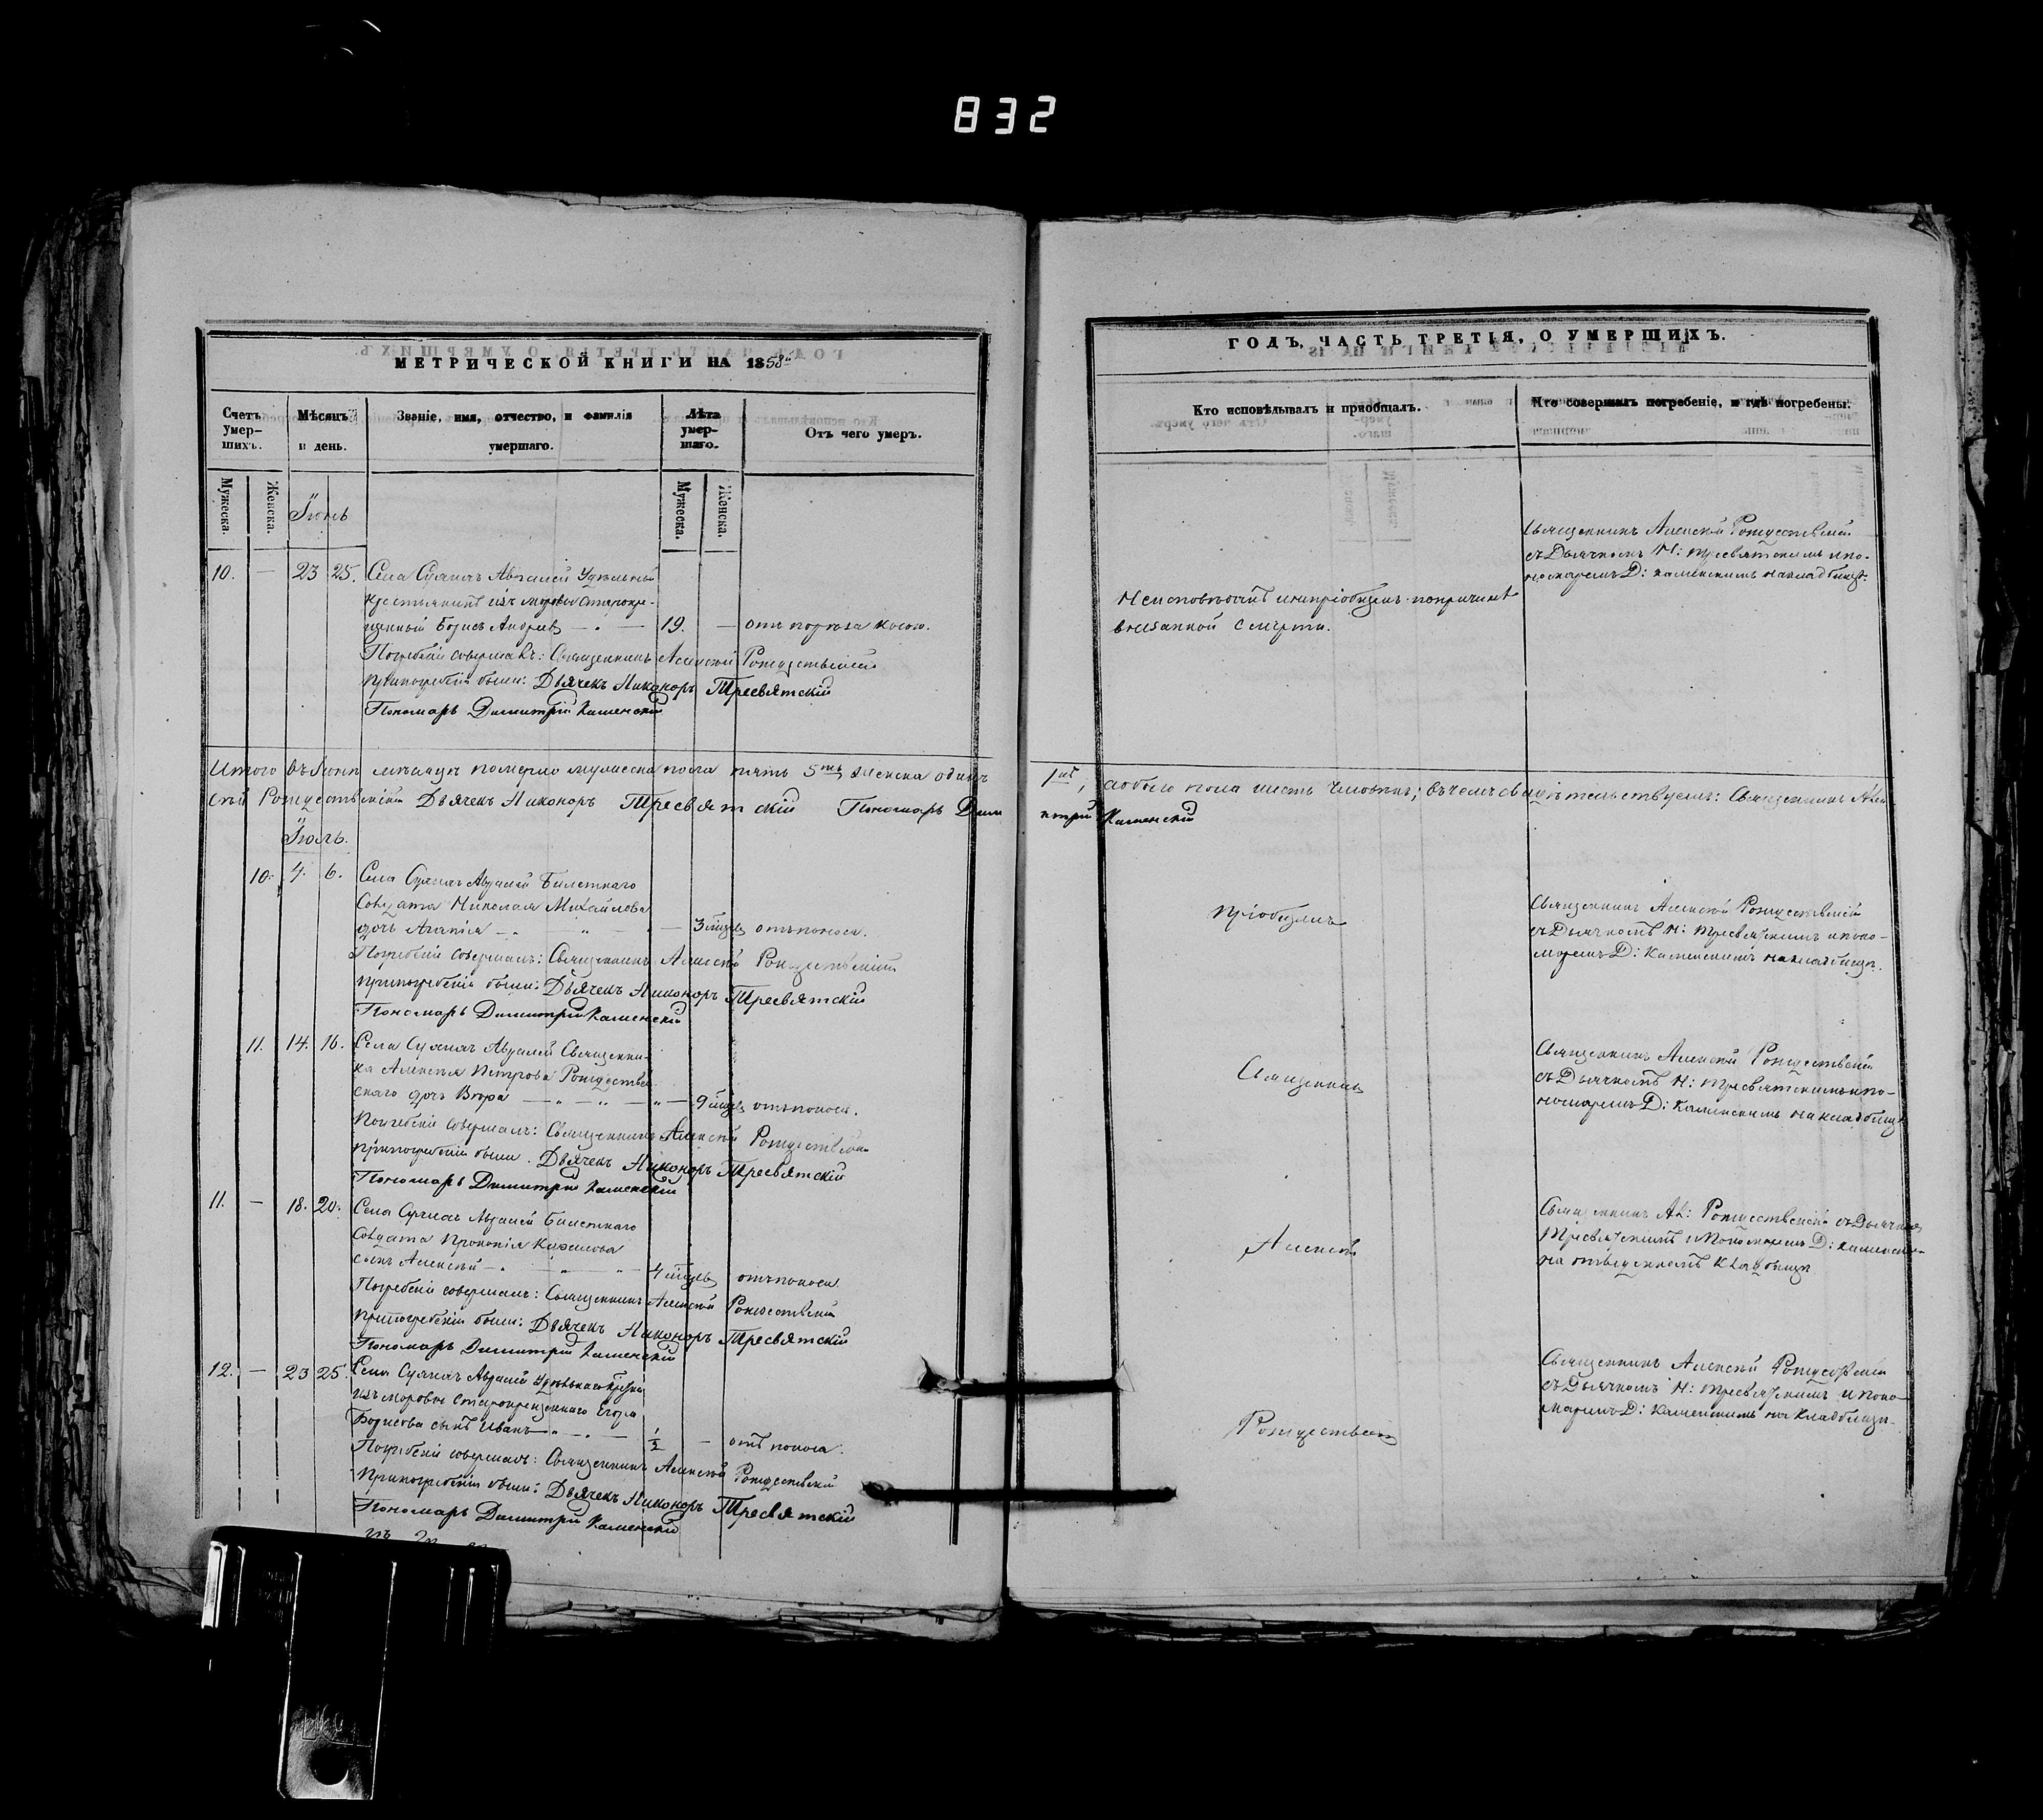 832
МЕТРИЧЕСКОЙ КНИГИ НА 1858й
Счетъ умер-шихъ.
Мѣсяцъ и день.
Званіе, имя, отчество, и фамилія умершаго.
Лѣта умер-шаго.
Отъ чего умеръ.
Мужеска.
Женска.
Мужеска.
Женска.
Іюнь
10. — 23 25. Села
Удѣльный
крестьянинъ изъ Мордвы старокре-
щенный Борисъ Андреевъ — 19. — отъ порѣза косою.
Погребеніе совершалъ: Священникъ Алексѣй Рождественскій
При погребеніи были: Дьячекъ Никоноръ Тресвятскій
Пономарь Димитрій Каменскій
Итого въ Іюнѣ мѣсяцѣ померло мужеска пола пять 5ть женска одинъ
сѣй Рождественскій Дьячекъ Никоноръ Тресвятскій Пономарь Дим
Іюль.
10. 4. 6. Села
Билетнаго
Солдата Николая Михайлова
дочь — 3 мѣсяц. отъ поноса.
Погребеніе совершалъ: Священникъ Алексѣй Рождественскій
При погребеніи были: Дьячекъ Никоноръ Тресвятскій
Пономарь Димитрій Каменскій
11. 14. 16. Села
Священни-
ка Алексѣя Петрова Рождествен-
скаго дочь Вѣра — 9 мѣсяц. отъ поноса.
Погребеніе совершалъ: Священникъ Алексѣй Рождественскій
При погребеніи были: Дьячекъ Никоноръ Тресвятскій
Пономарь Димитрій Каменскій
11. — 18. 20. Села
Билетнаго
Солдата Прокопія
сынъ Алексѣй — 4 мѣсяц. отъ поноса
Погребеніе совершалъ: Священникъ Алексѣй Рождественскій
При погребеніи были: Дьячекъ Никоноръ Тресвятскій
Пономарь Димитрій Каменскій
12. — 23 25. Села
Удѣльнаго
изъ Мордвы Старокрещеннаго Егора
Борисова сынъ Иванъ — 1/2 — отъ поноса.
Погребеніе совершалъ: Священникъ Алексѣй Рождественскій
При погребеніи были: Дьячекъ Никоноръ Тресвятскій
Пономарь Димитрій Каменскій
ГОДЪ, ЧАСТЬ ТРЕТІЯ, О УМЕРШИХЪ.
Кто исповѣдывалъ и пріобщалъ.
Кто совершалъ погребеніе, и гдѣ погребены.
Священникъ Алексѣй Рождественскій
съ Дьячкомъ Н: Тресвятскимъ и по-
номаремъ Д: Каменскимъ на кладбищѣ.
Не исповѣданъ и не пріобщенъ по причинѣ
внезапной смерти.
1на, а обоего пола шесть человѣкъ; въ чемъ свидѣтельствуемъ: Священникъ Алек
итрій Каменскій
Пріобщалъ
Священникъ Алексѣй Рождественскій
съ Дьячкомъ Н: Тресвятскимъ и поно-
маремъ Д: Каменскимъ на кладбищѣ.
Священникъ
Священникъ Алексѣй Рождественскій
съ Дьячкомъ Н: Тресвятскимъ и по-
номаремъ Д: Каменскимъ на кладбищѣ
Алексѣй
Священникъ Ал: Рождественскій съ Дьячкомъ
Тресвятскимъ и Пономаремъ Д: Каменским
на отведенномъ кладбищѣ
Рождественскій
Священникъ Алексѣй Рождественскій
съ Дьячкомъ Н: Тресвятскимъ и поно-
маремъ Д: Каменскимъ на кладбищѣ